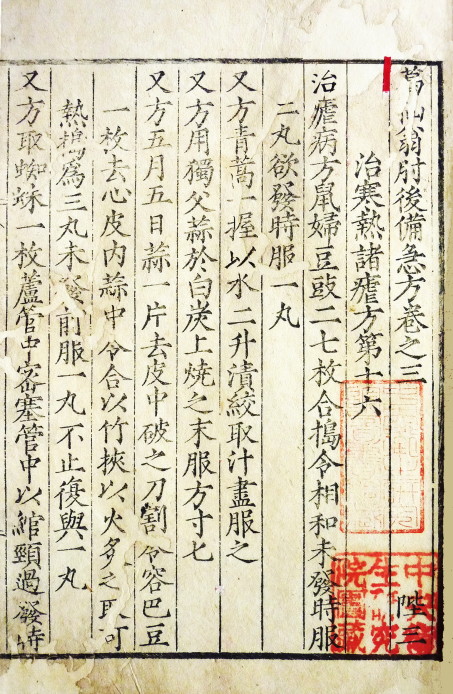 葛仙翁肘後備急方卷之三
治寒熱諸瘧方第十六
治瘧病方鼠婦豆豉二七枚合搗令相和未發時服
二丸欲發時服一丸
又方青蒿一握以水二升漬絞取汁盡服之
又方用獨父蒜於白炭上燒之末服方寸匕
又方五月五日蒜一片去皮中破之刀割令容巴豆
一枚去心皮內蒜中令合以竹挾以火炙之取可
熱搗為三丸未發前服一丸不止復與一丸
又方取蜘蛛一枚蘆管中密塞管中以綰頸過發時
陛三